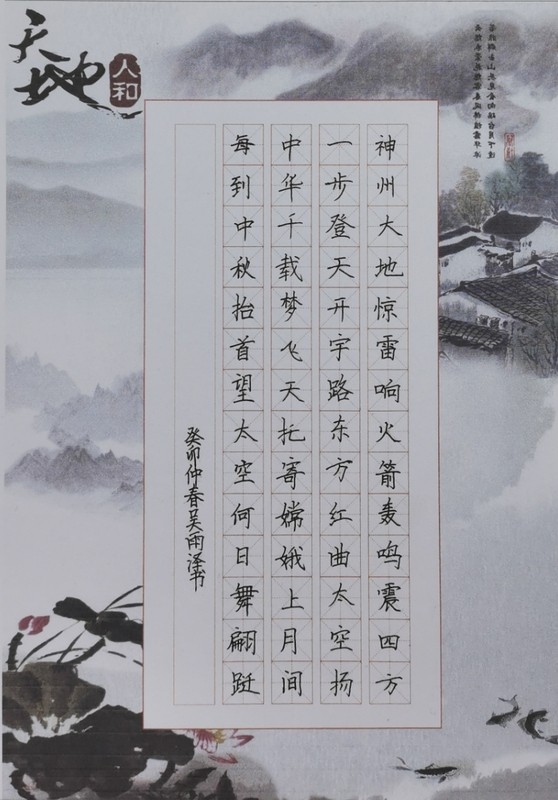 天地
人和
神州大地惊雷响火箭轰鸣震四方
一步登天开宇路东方红曲太空扬
中华千载梦飞天托寄嫦娥上月间
每到中秋抬首望太空何日舞翩跹
癸卯仲春吴雨泽书